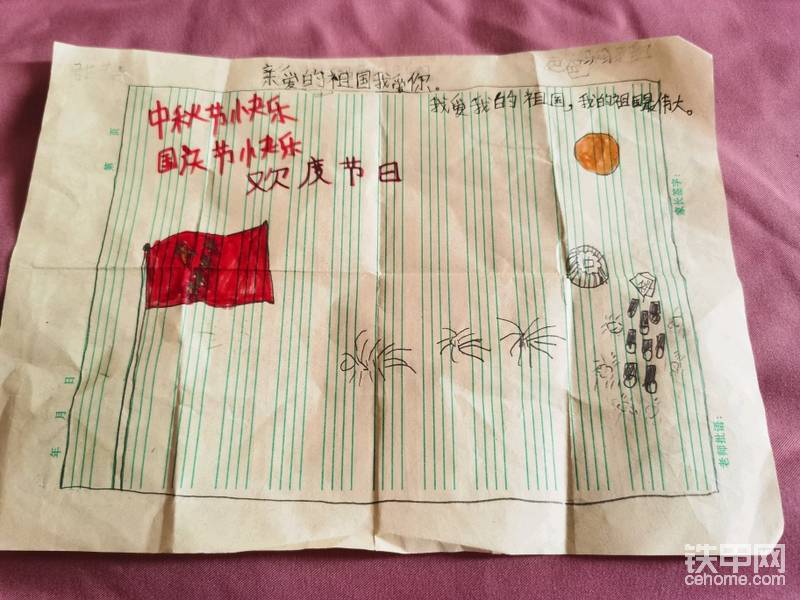 亲爱的祖国我爱你。
我爱我的祖国，我的祖国最伟大。
中秋节快乐
国庆节快乐
欢度节日
第 页
家长签字：
年 月 日
老师批语：
铁甲网
cehome.com